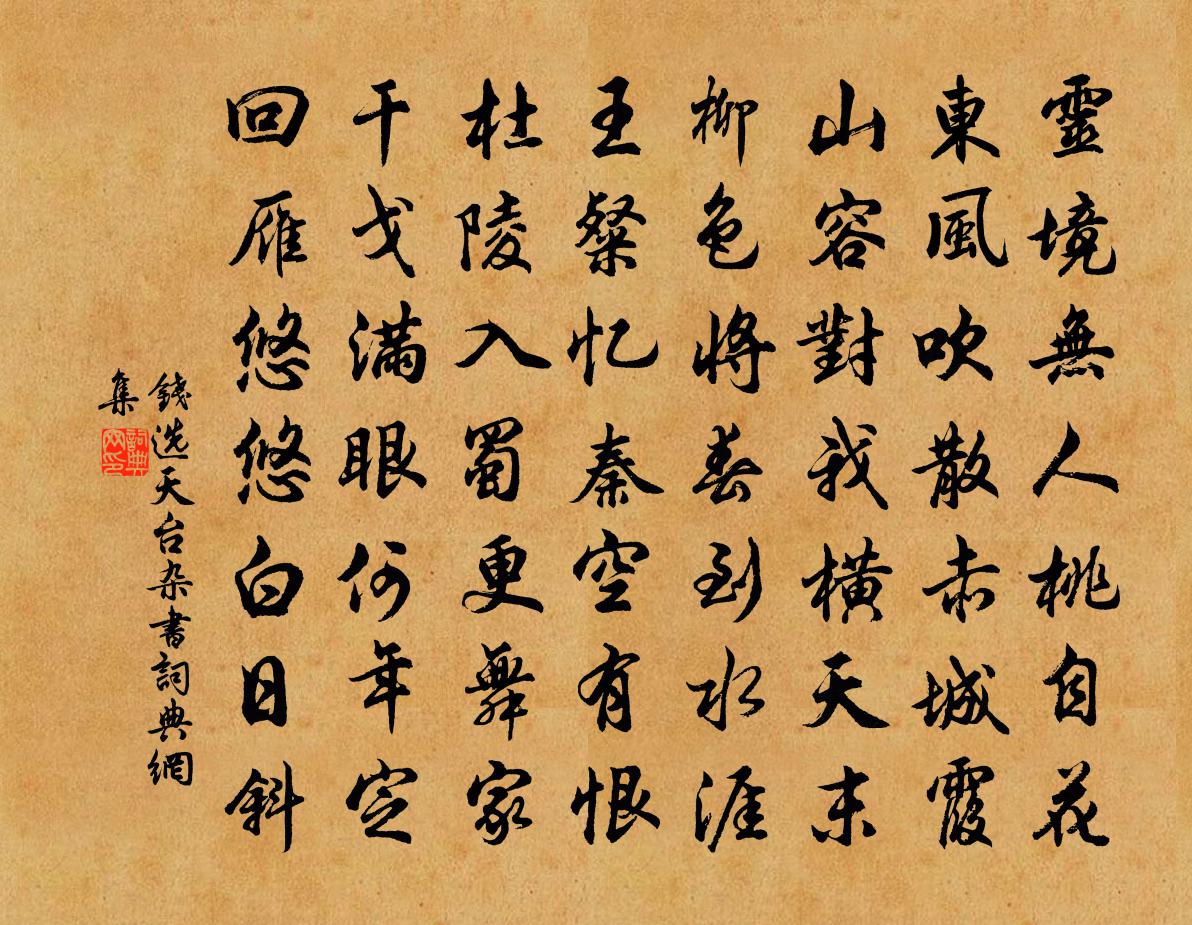 靈境無人桃自花
東風吹散赤城霞
山容對我橫天末
柳色將春到水涯
王粲忆秦空有恨
杜陵入蜀更無家
干戈滿眼何年定
回雁悠悠白日斜
錢选天台杂書詞典網
集
詞典
网印